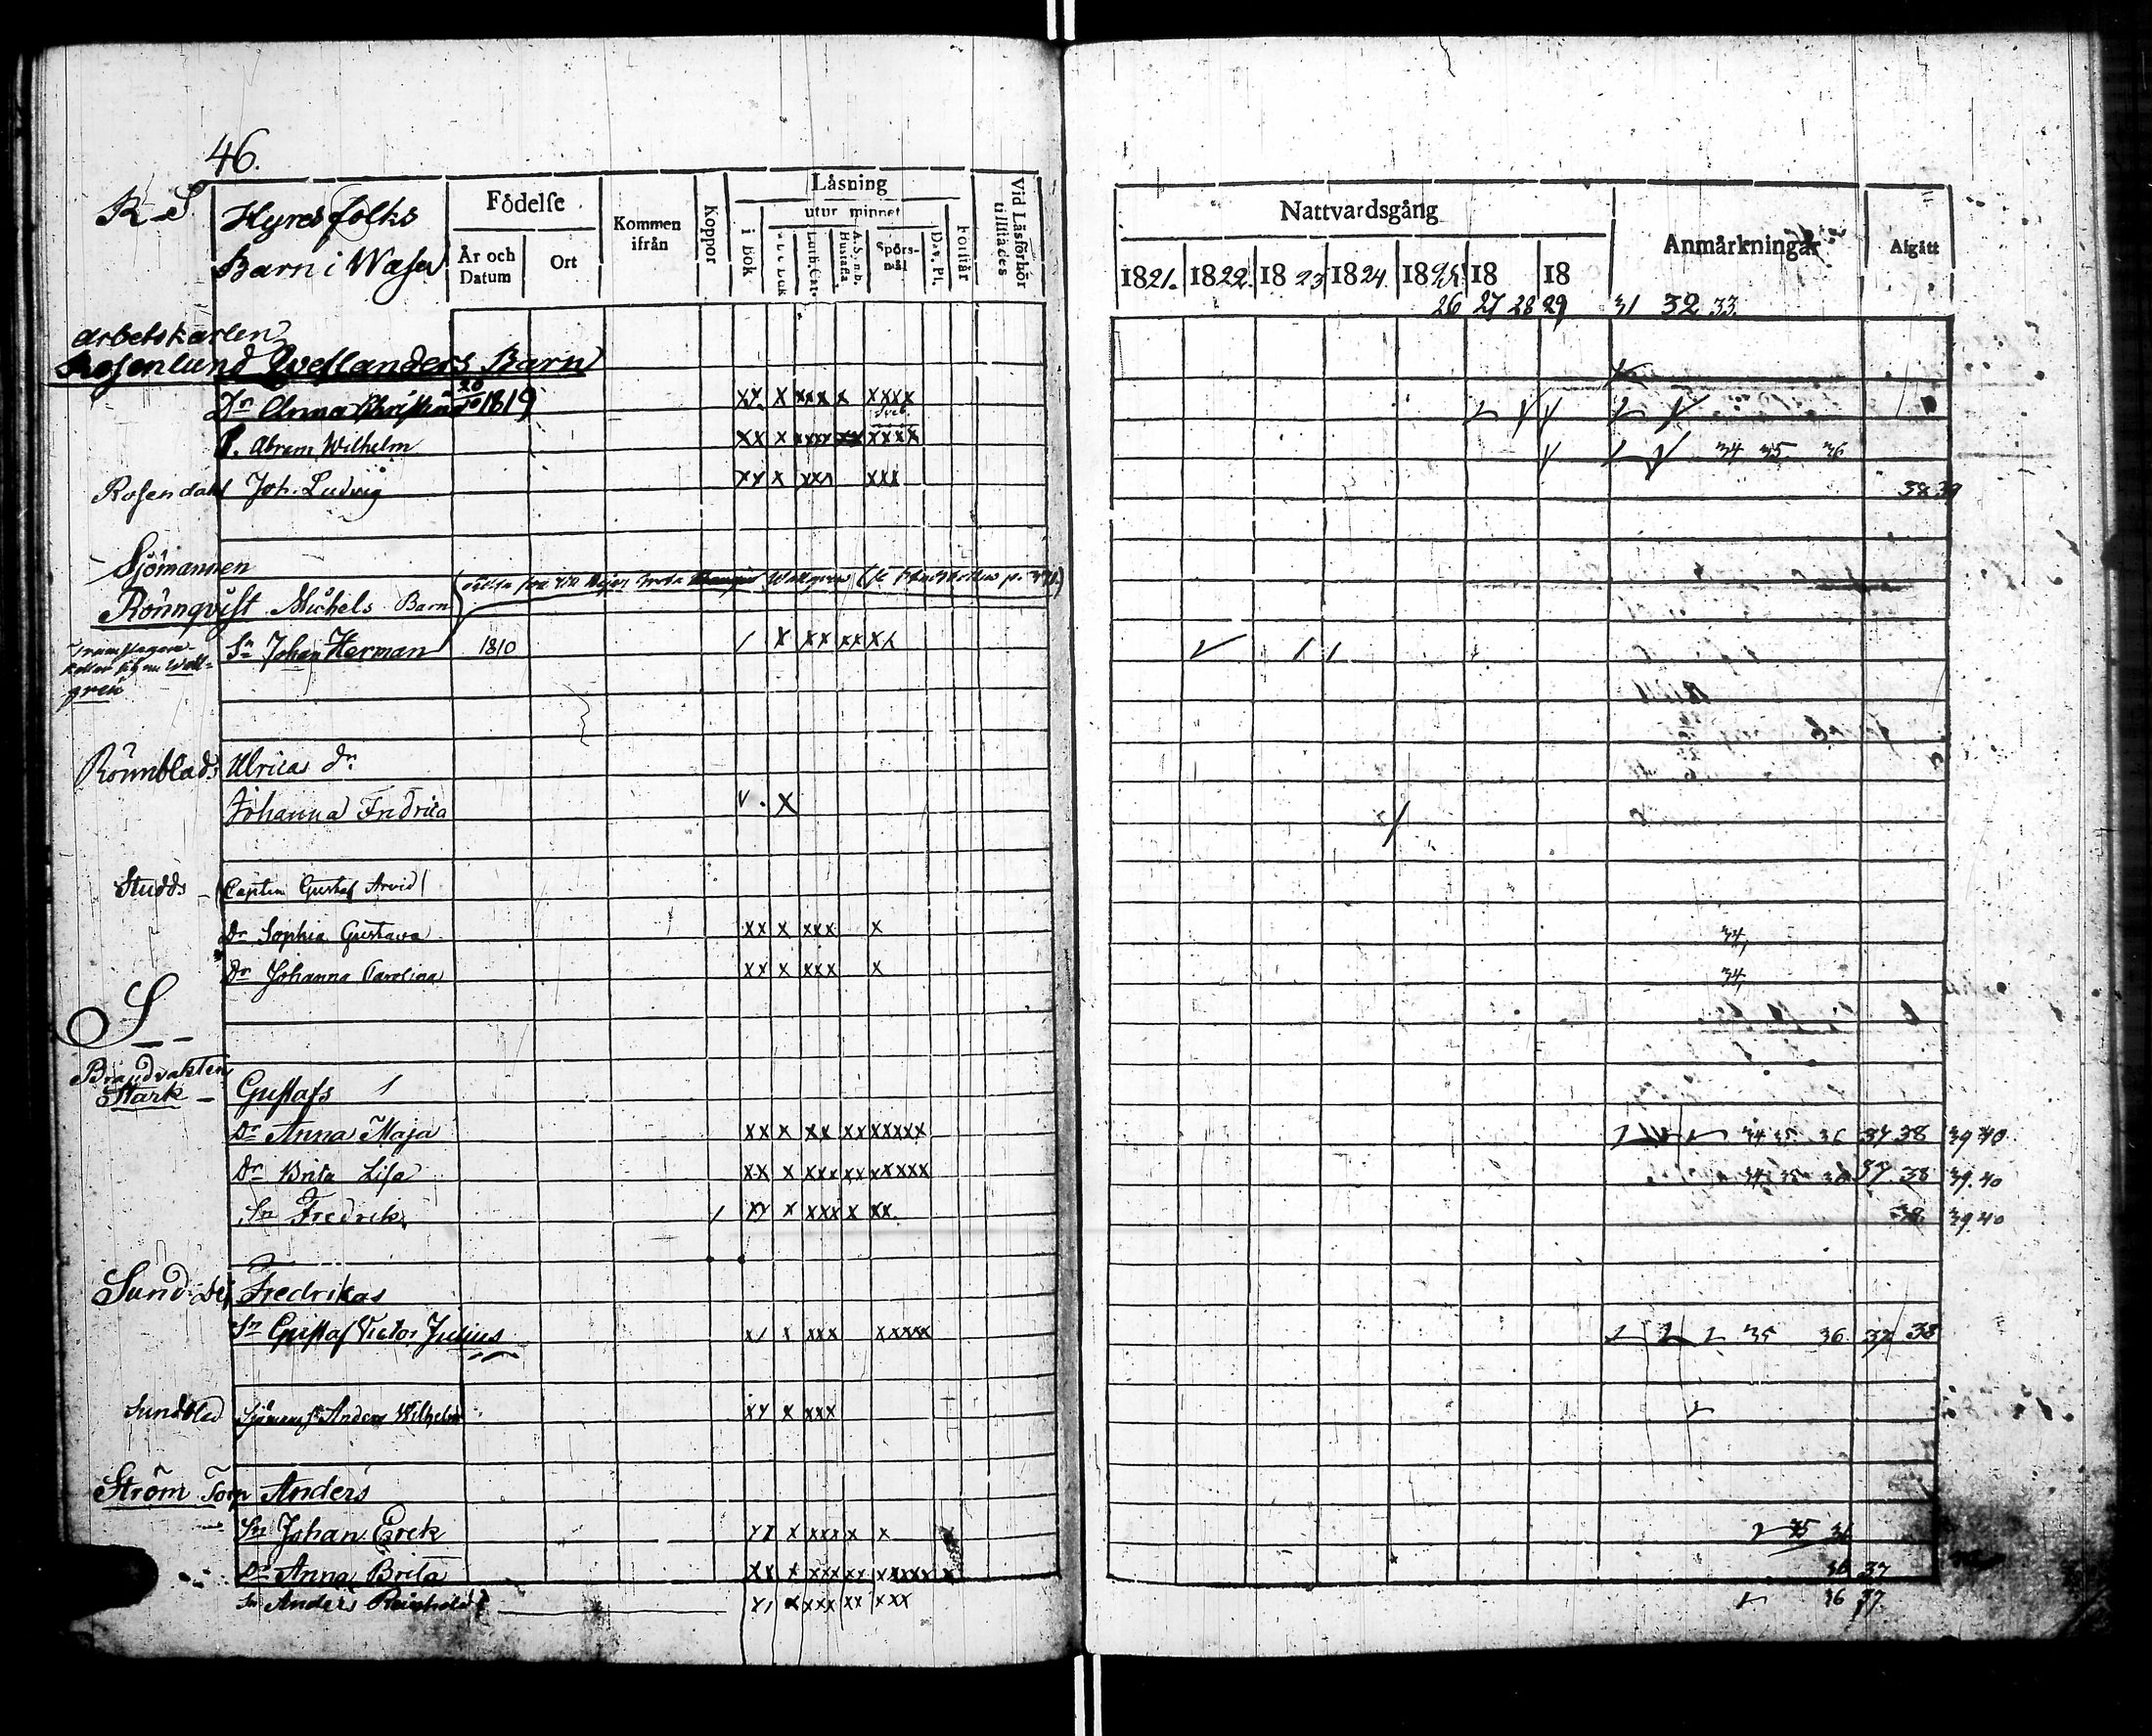 46.
R-S
Hyresfolks
Barn i Wasa
Födelse
År och Datum
Ort
Kommen ifrån
Koppor
Läsning
i Bok
utur minnet
A B C Bok
Luth. Cat.
A.S. n.b. Hustafla
Spörsmål
Dav. Pf.
Förstår
Vid Läsförhör tillstädes
Nattvardsgång
1821. 1822. 1823 1824. 1825 18 18
26 27 28 29 31 32 33.
Anmärkningar
Afgått
arbetskarlen
Rosenlund Barn
Dr Anna Christina 20/10 1819 xx x xxx x xxxx
Sveb.
Abram Wilhelm xx x xxxx xx xxxx 34 35 36
Rosendahl Joh. Ludvig xx x xxx xxx 38 39
Sjömannen
Rönnqvist Michels Barn
Sn Johan Herman 1810 / x xx xx xx
Rönnblads Ulricas dr
Johanna Fredrica v. x
Studds - (Capten Gustaf Arvid)
Dr Sophia Gustava xx x xxx x 34,
Dr Johanna Carolina xx x xxx x 34,
S
Brandvakten
Stark - Gustafs
Dr Anna Maja xx x xx xx xxxxx 34 35 36 37 38 39 40
Dr Brita Lisa xx x xxx xx xxxxx 34 35 36 37. 38 39. 40
Sn Fredrik / xx x xxx x xx. 38. 39. 40
Sund Fredrikas
Sn Gustaf Victor Julius x/ x xxx xxxx 35 36. 37 38
Sundblad Anders Wilhelm xx x xxx
Ström Anders
Sn Johan Erek xx x xxx x x 35 36
Dr Anna Brita xx x xxx xx xxxxx x 36 37
Sn Anders Reinhold x/ x xxx xx xxx 36 37.